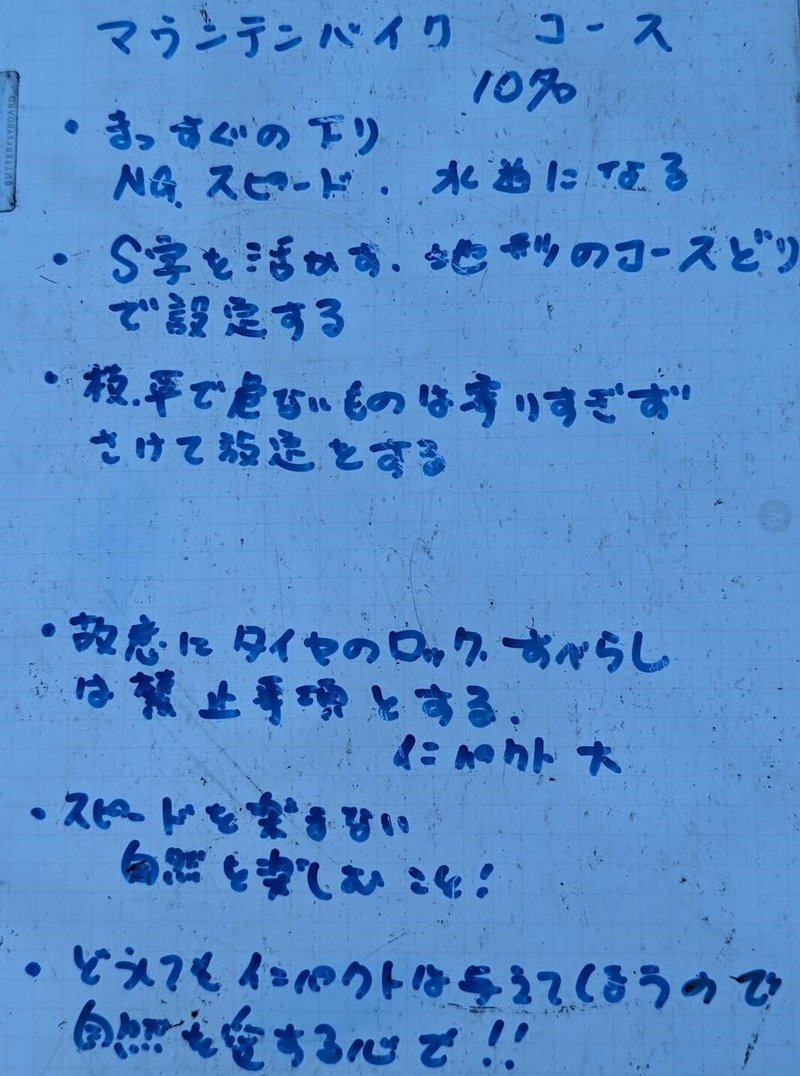 マウンテンバイク コース
10名
・まっすぐの下り
NG. スピード. 水道になる
・S字を活かす. 地形のコースどり
で設定する
・枝.平で危ないものは寄りすぎず
さけて設定とする
・故意にタイヤのロック すべらし
は禁止事項とする.
インパクト大
・スピードを楽しまない
自然を楽しむこと!
・どうしてもインパクトは与えてしまうので
自然を愛する心で!!
BUTTERFLYBOARD